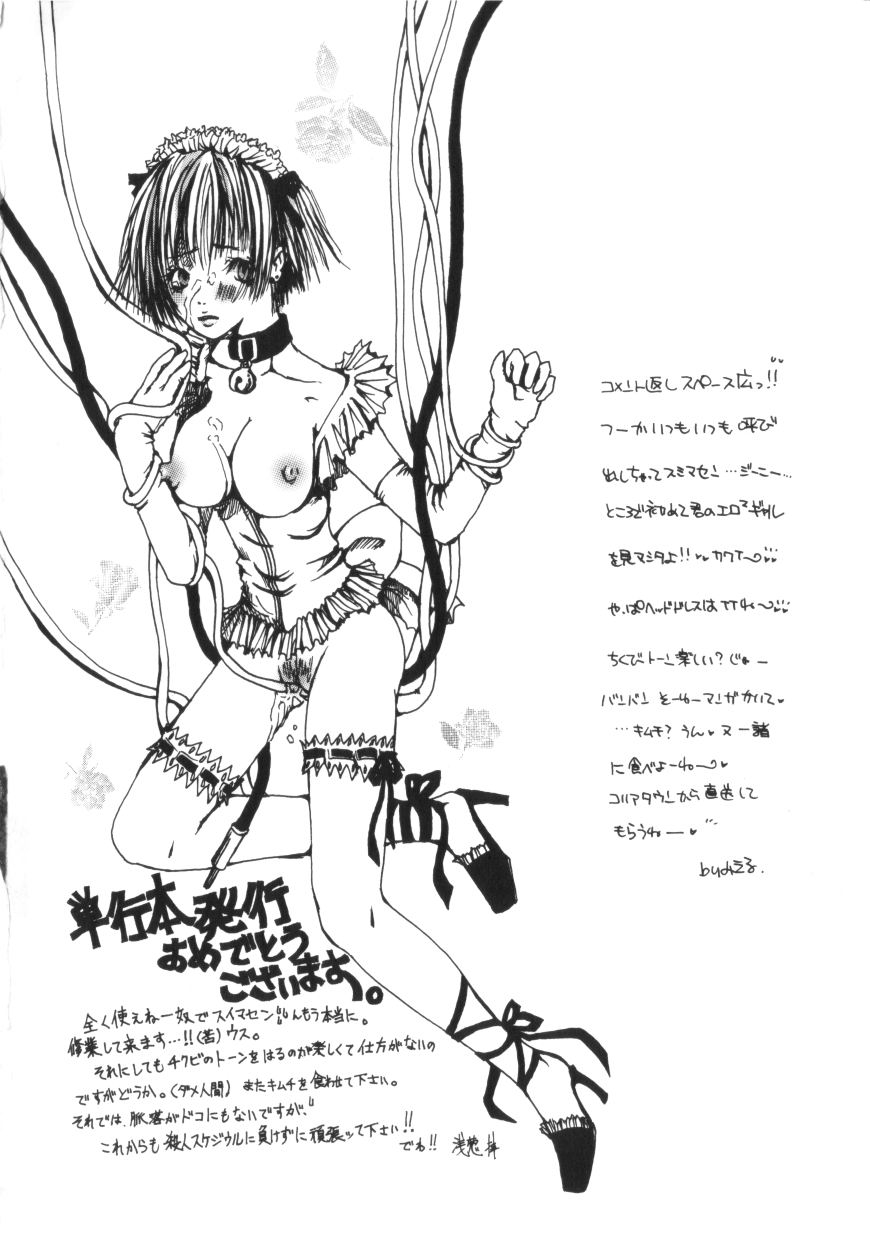 単行本発行
おめでとう
ございます。
全く使えねー奴でスイマセン。んもう本当に。
修業して来ます…!!(苦)ウス。
それにしてもチクビのトーンをはるのが楽しくて仕方がないの
ですがどうか。(ダメ人間) またキムチを食わせて下さい。
それでは、脈落がドコにもないですが、
これからも殺人スケジウルに負けずに頑張ッて下さい!!
でわ!!
コメント返しスペース広っ!!
フーかいつもいつも呼び
だしちゃってスミマセン…ジーニー…
ところで初めて君のエロギャル
を見マシタよ!!♥♥カワイ〜♥
やっぱヘッドドレスはイイね〜♥
ちくびトーン楽しい?じゃー
バンバンそーゆーマンガかいて♥
…キムチ?うん♥又一諸
に食べよーね〜♥
コリアタウンから直送して
もらうねー♥
byみえる.